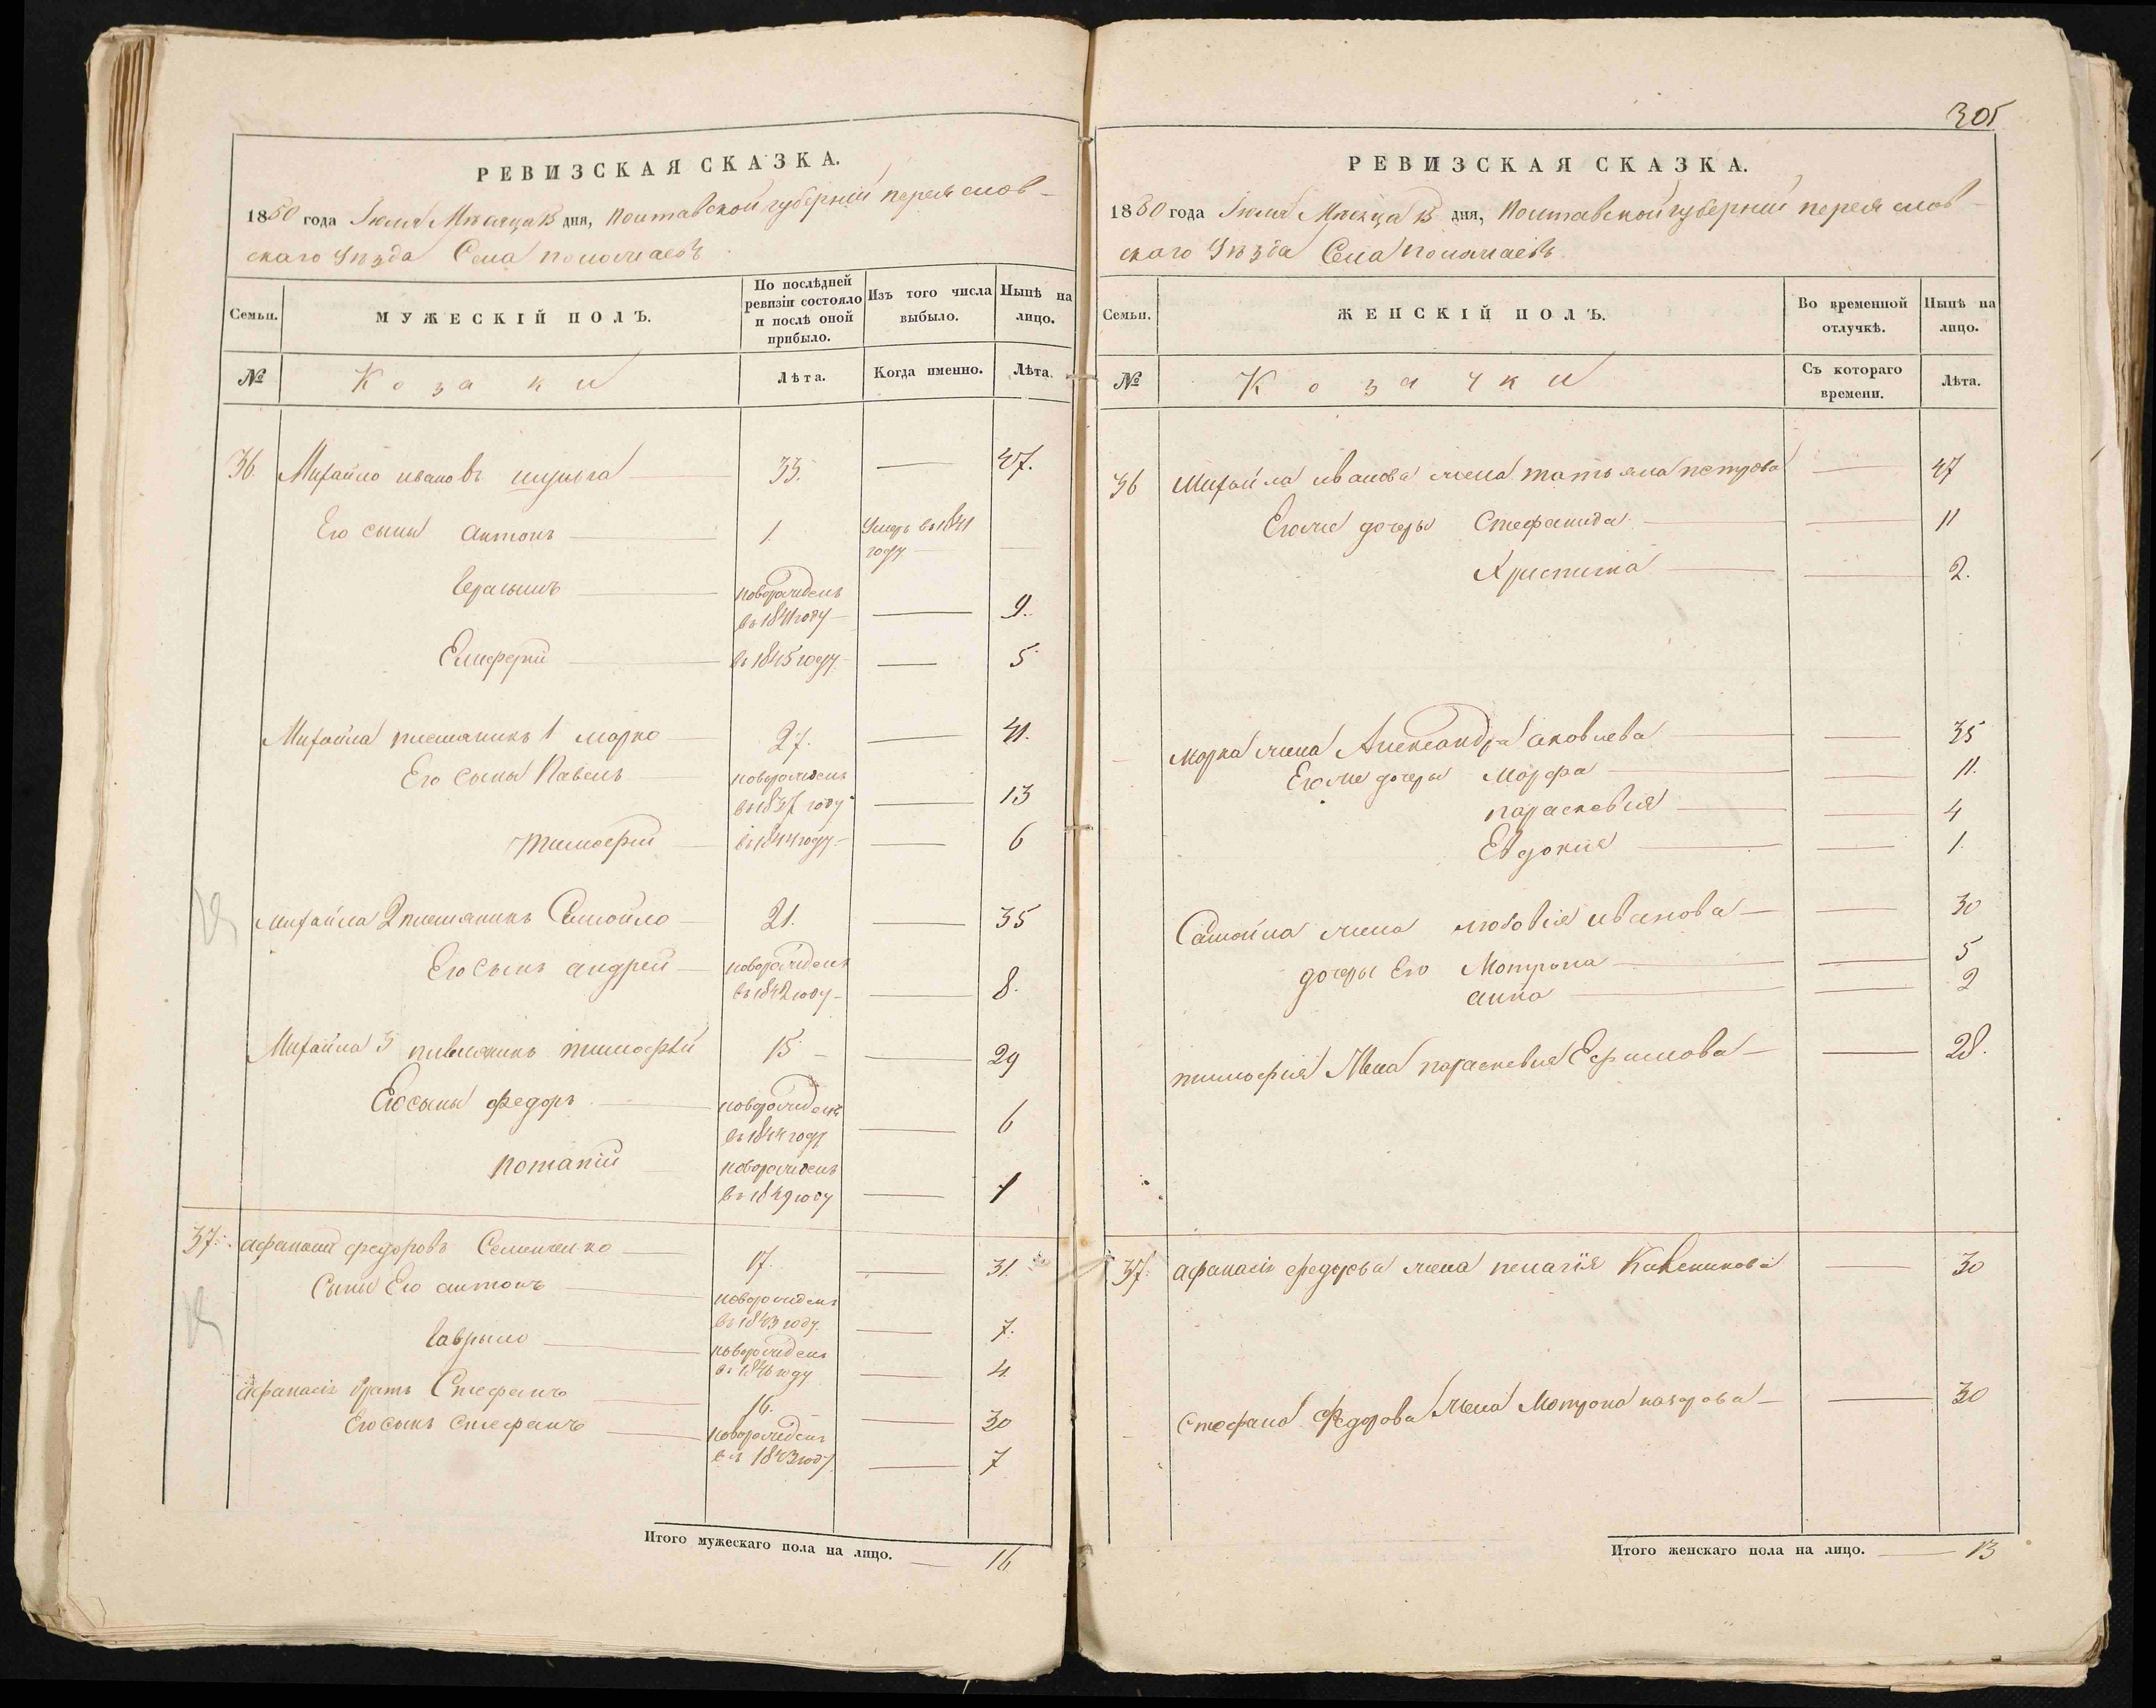 РЕВИЗСКАЯ СКАЗКА.
1850 года Июля Мѣсяца 13 дня, Полтавской губерніи переяслов-
скаго Уѣзда Села
Семьи.
МУЖЕСКІЙ ПОЛЪ.
По послѣдней ревизіи состояло и послѣ оной прибыло.
Изъ того числа выбыло.
Нынѣ на лицо.
№
Козаки
Лѣта.
Когда именно.
Лѣта.
36. Михайло ивановъ 33. — 47.
Его сыны антонъ — 1. Умеръ въ 1841 году —
Герасимъ — новорожденъ въ 1841 году — 9.
Елиферій — въ 1845 году — 5
Михайла племяникъ 1 марко — 27. — 41.
Его сыны Павелъ новорожденъ въ 1837 году — 13
тимофей — въ 1844 году — 6
Михайла 2 племяникъ Самойло — 21. — 35
Его сынъ андрей — новорожденъ въ 1842 году — 8.
Михайла 3 племяникъ тимофѣй 15 — 29
Его сыны федоръ — новорожденъ въ 1844 году — 6
потапій новорожденъ въ 1849 году — 1
37. афанасій федоровъ Семенченко — 17. — 31.
Сыны Его антонъ — новорожденъ въ 1843 году — 7.
Гаврыло — новорожденъ въ 1846 году — 4.
афанасія братъ Стефанъ — 16. 30
Его сынъ Стефанъ — новорожденъ въ 1843 году — 7
Итого мужескаго пола на лицо. — 16
305
РЕВИЗСКАЯ СКАЗКА.
1850 года Июля Мѣсяца 13 дня, Полтавской губерніи переяслов-
скаго Уѣзда Села
Семьи.
ЖЕНСКІЙ ПОЛЪ.
Во временной отлучкѣ.
Нынѣ на лицо.
№
Козачки
Съ котораго времени.
Лѣта.
36 Михайла иванова жена татьяна петрова — 47
Егоже дочеры Стефанида — 11
Христина — 2.
Марка жена Александра яковлева — 35
Егоже дочеры Марфа — 11.
параскевия — 4
Евдокия — 1.
Самойла жена любовія иванова — 30
дочеры Его Мотрона — 5
анна — 2
тимофія Жена параскевия Ефимова — 28.
37. афанасія федорова жена пелагія — 30
Стефана Федорова Жена Мотрона назарова — 30
Итого женскаго пола на лицо. — 13